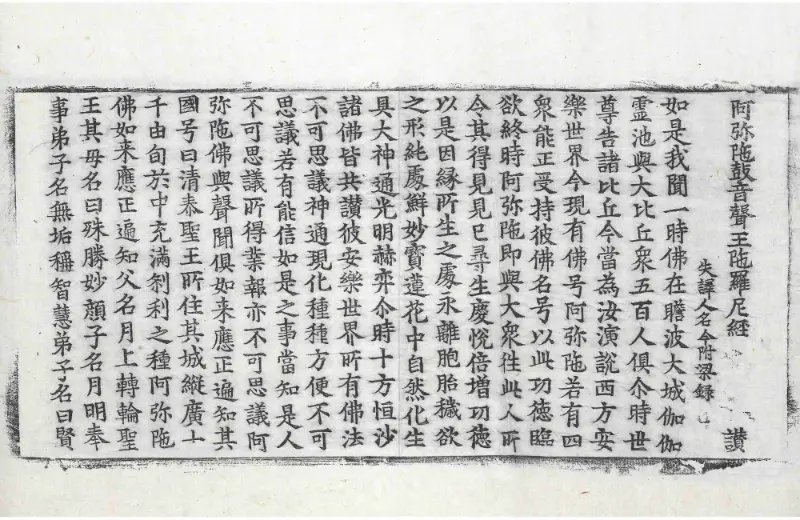 阿弥陁鼓音聲王陁羅尼経 讃
失譯人名今附梁錄
如是我聞一時佛在瞻波大城伽伽
霊池與大比丘衆五百人俱尒時世
尊告諸比丘今當為汝演說西方安
樂世界今現有佛号阿弥陁若有四
衆能正受持彼佛名号以此功德臨
欲終時阿弥陁即與大衆徃此人所
令其得見見已尋生慶悅倍增功德
以是因縁所生之處永離胞胎穢欲
之形純處鮮妙寳蓮花中自然化生
具大神通光明赫弈尒時十方恒沙
諸佛皆共讃彼安樂世界所有佛法
不可思議神通現化種種方便不可
思議若有能信如是之事當知是人
不可思議所得業報亦不可思議阿
弥陁佛與聲聞俱如来應正遍知其
國号曰清泰聖王所住其城縱廣十
千由旬於中充滿刹利之種阿弥陁
佛如来應正遍知父名月上轉輪聖
王其母名曰殊勝妙顔子名月明奉
事弟子名無垢稱智慧弟子名曰賢